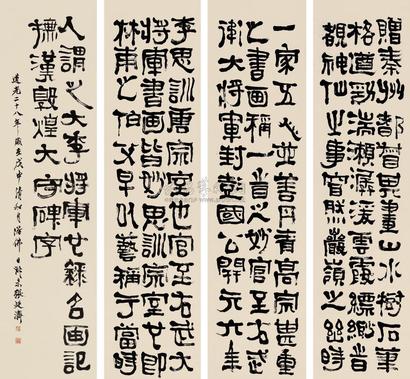 李思訓唐宗室也官至右武大
將軍書画皆妙思訓宗室也即
林甫之伯父早以藝稱于當時
一家五人並善丹青高宗甚重
之書画稱一旹之妙官至左武
衛大將軍封彭國公開元六年
贈秦州都督其畫山水樹石筆
格遒勁湍瀨潺湲雲霞縹緲旹
覩神仙之事窅然巖嶺之幽時
人謂之大李將軍 錄名画記
橅漢敦煌大守碑字
道光二十八年歲在戊申清和月浴佛日叔未張廷濟